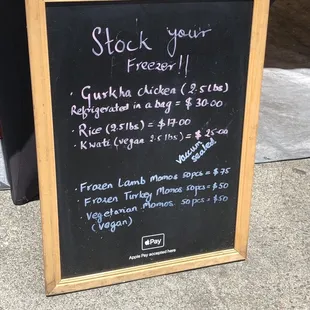 Stock your
Freezer!!
· Gurkha chicken (2.5lbs)
Refrigerated in a bag = $30.00
· Rice (2.5lbs) = $17.00
· Kwati (vegan 2.5lbs) = $25.00
Vaccum
sealed
· Frozen Lamb Momos 50pcs = $75
· Frozen Turkey Momos 50pcs = $50
· Vegetarian Momos 50pcs = $50
(Vegan)
Pay
Apple Pay accepted here